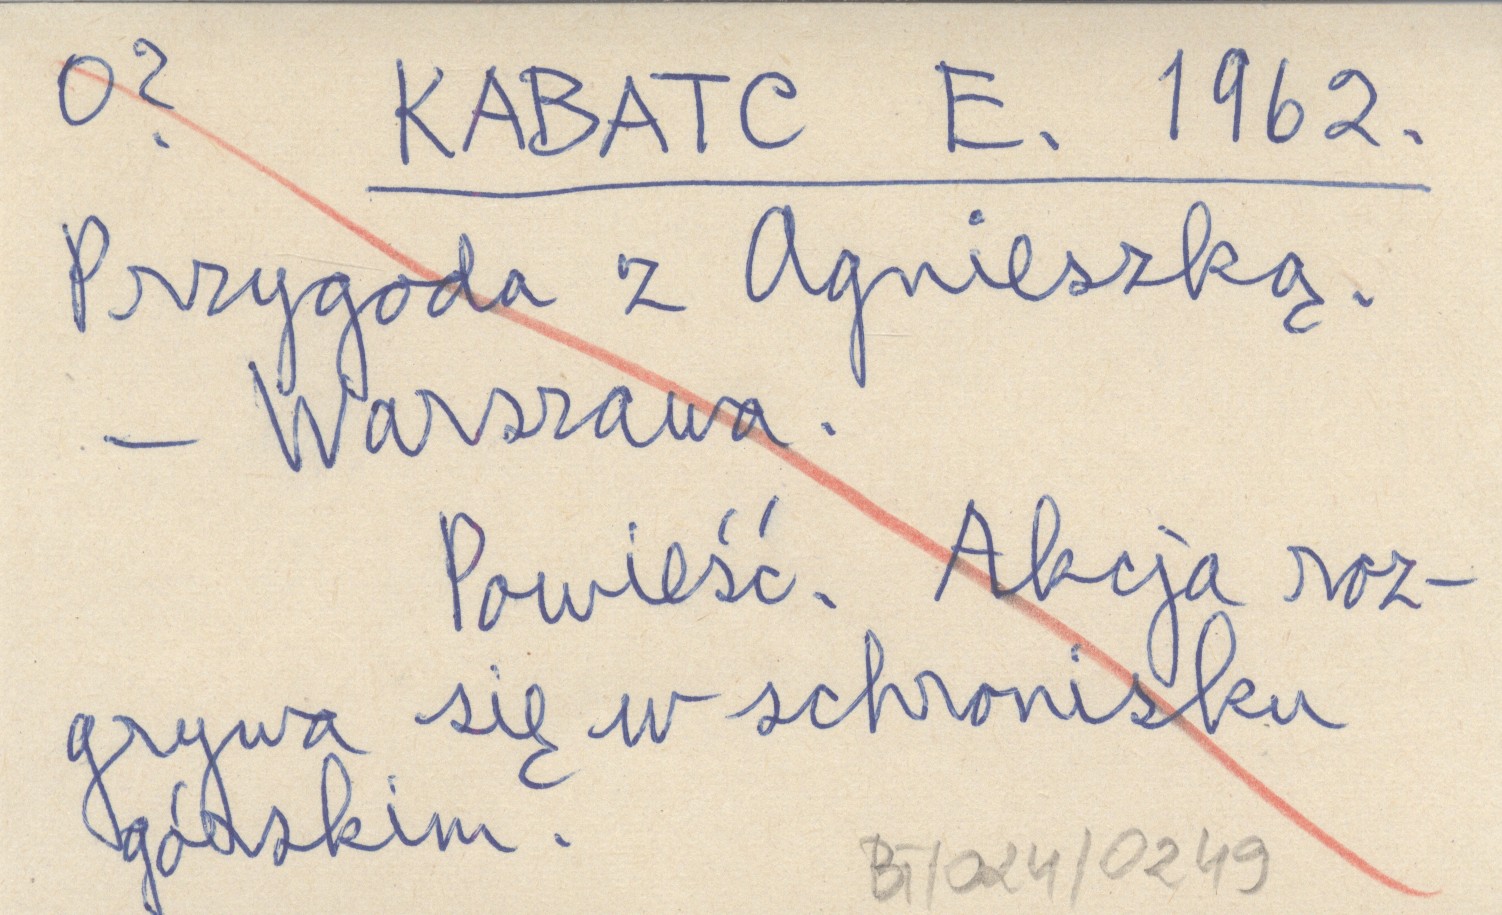 O? KABATC E. 1962.
Przygoda z Agnieszką.
– Warszawa.
Powieść. Akcja roz-
grywa się w schronisku
górskim.
BT/024/0249